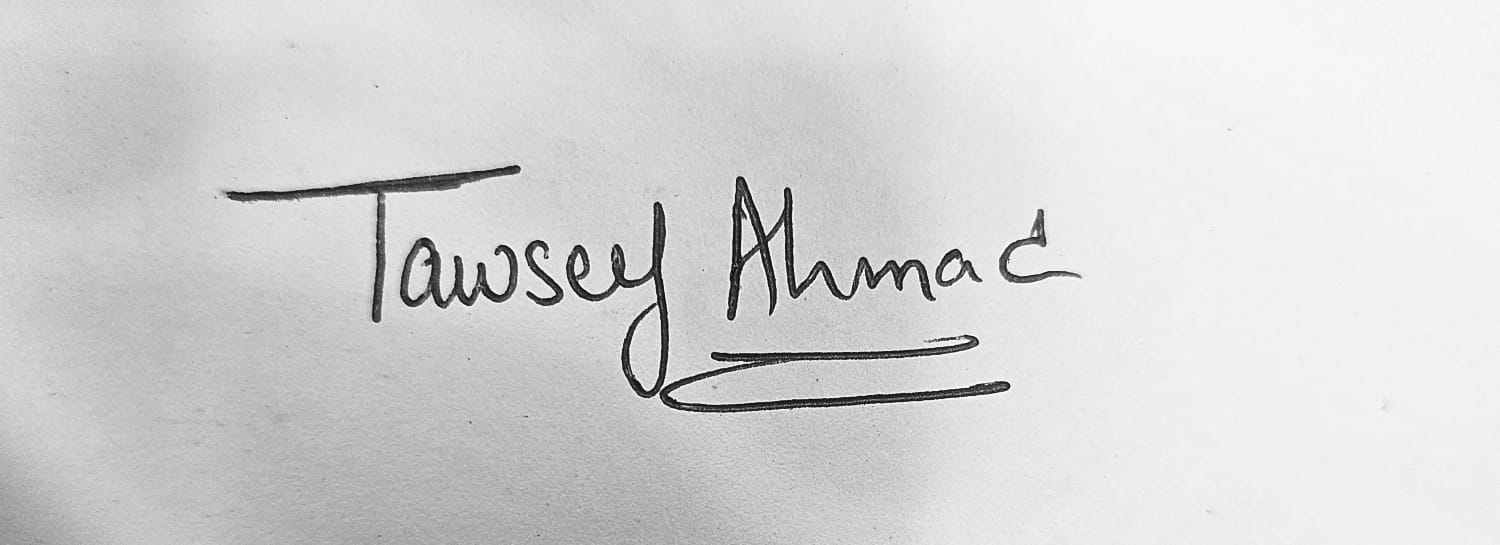 Tawsey Ahmad